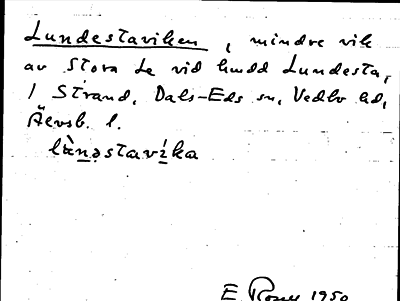 Lundestaviken, mindre vik
av Stora Le vid hmdd Lundesta,
1 Strand, Dals-Eds sn, Vedbo hd,
Älvsb. l.
lùnəstavíka
E 1950